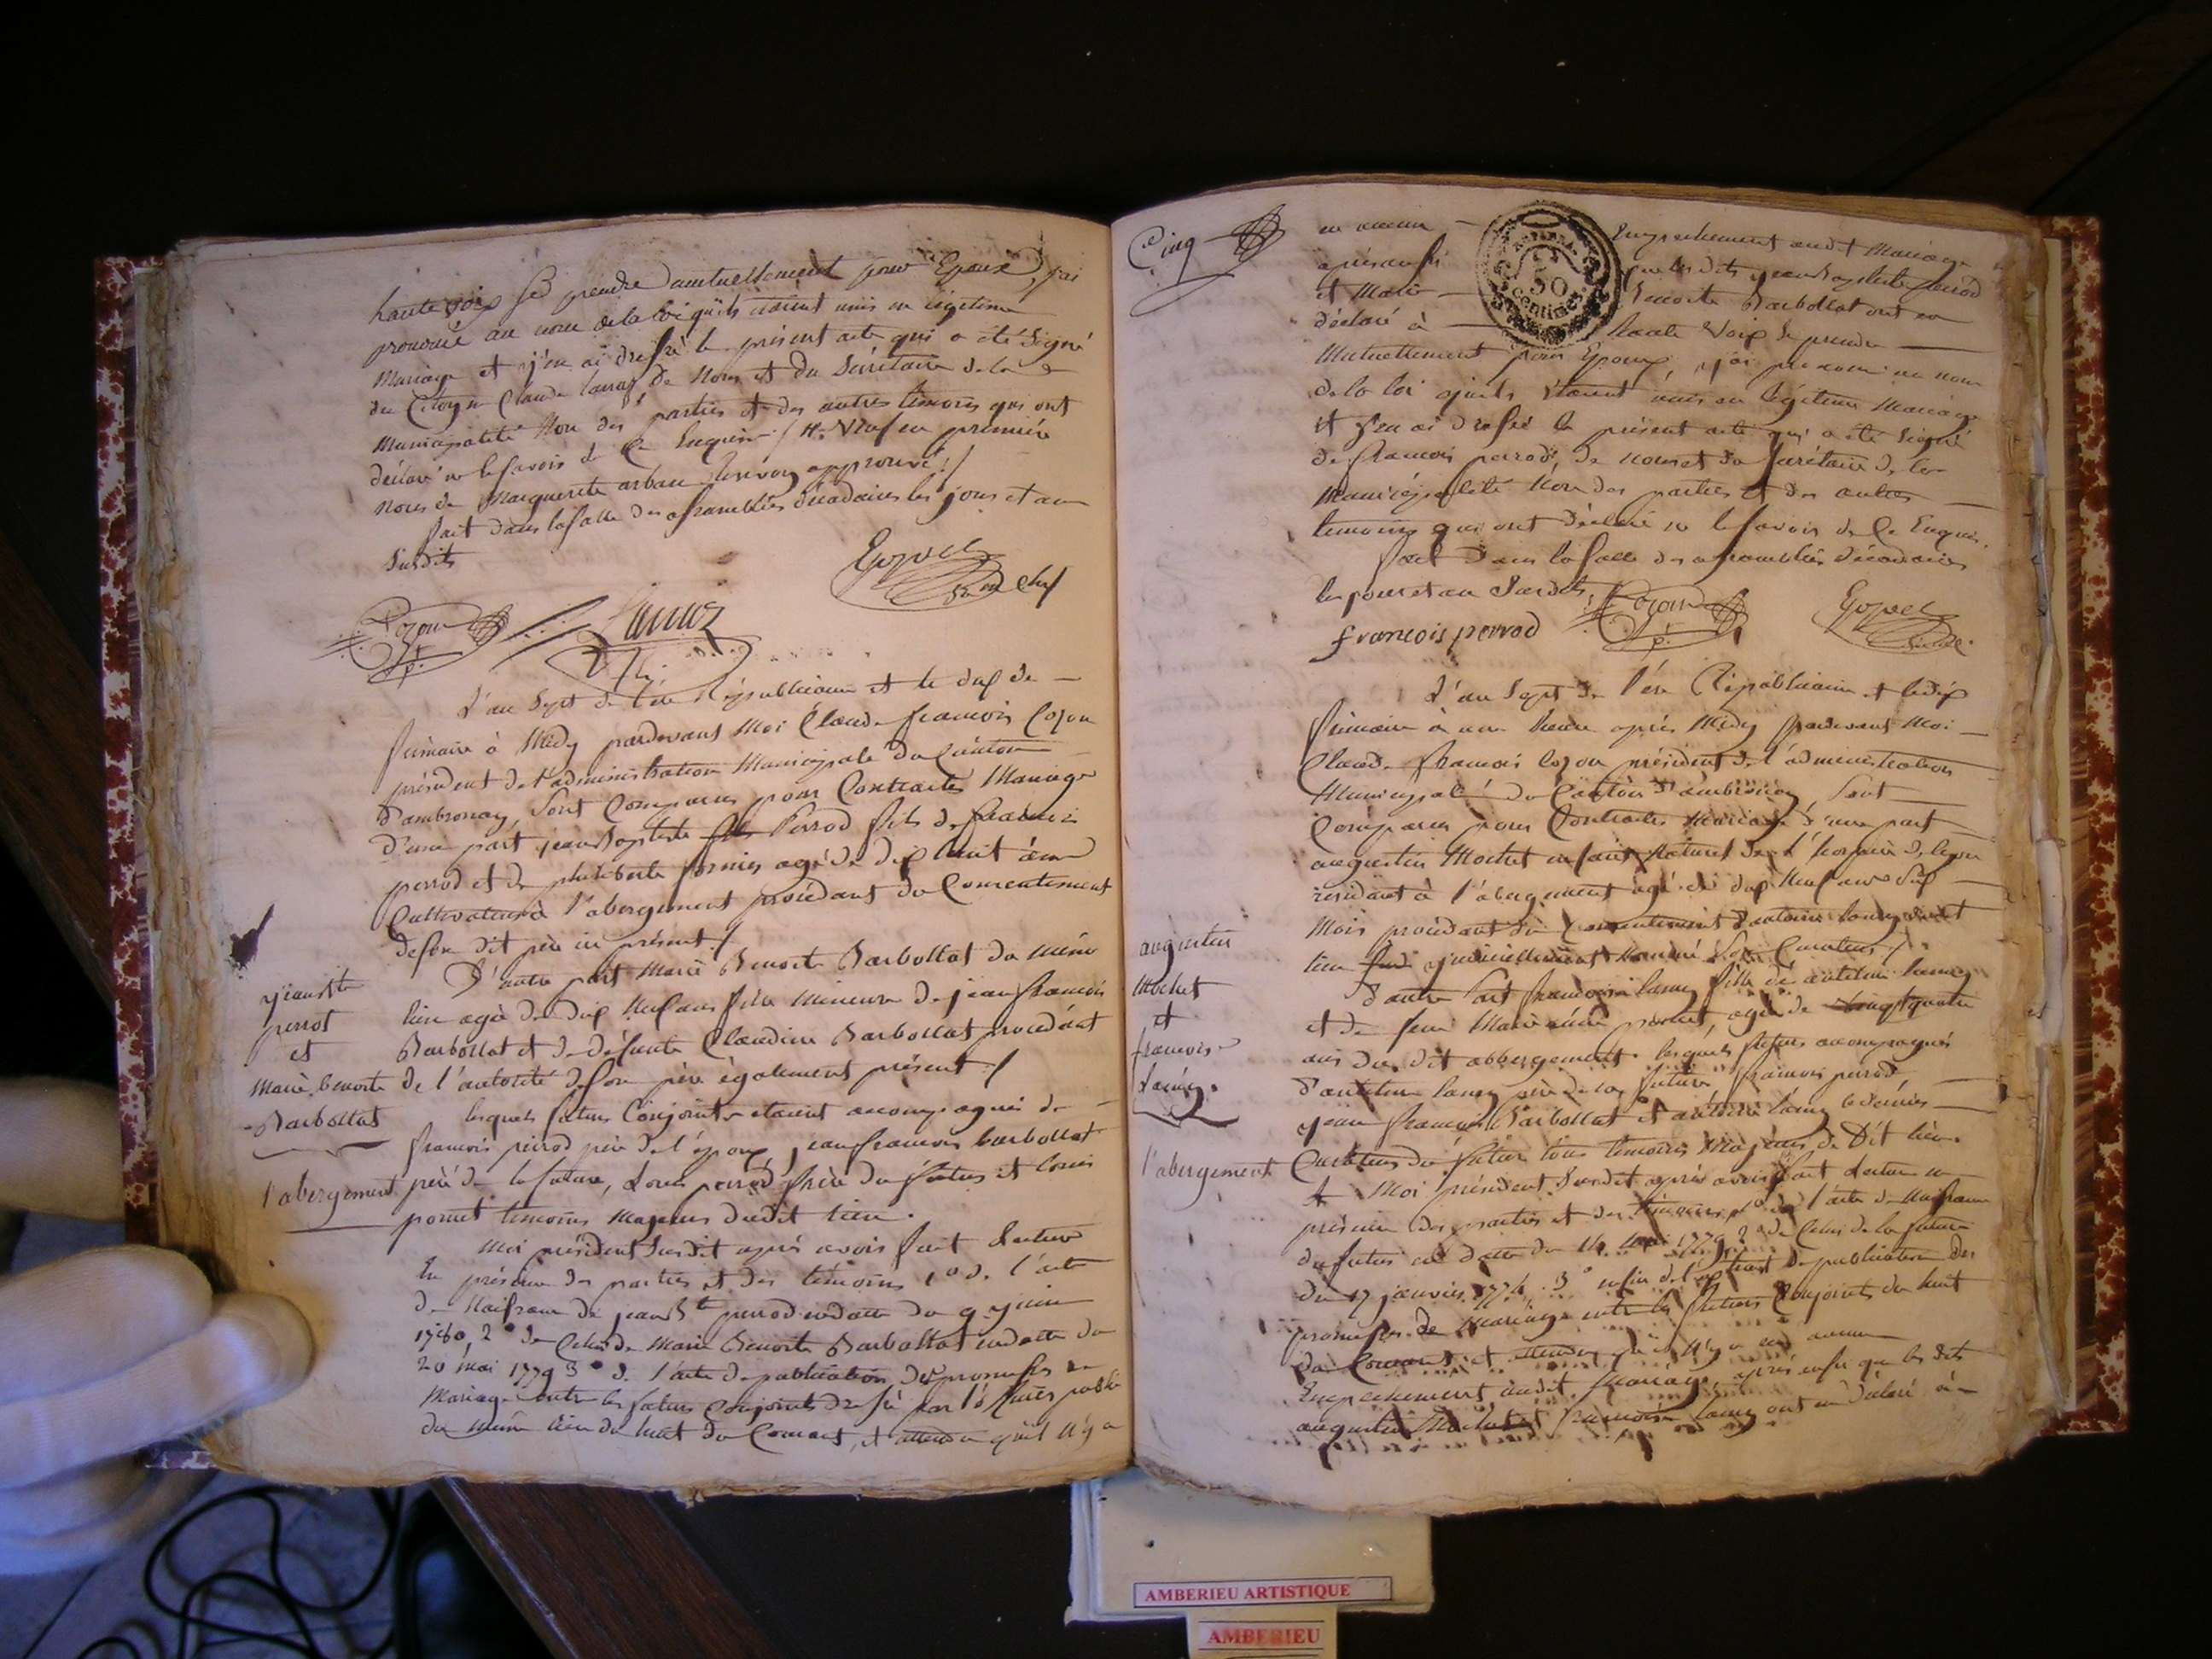 haute voix se prendre mutuellement pour Epoux, j'ai
prononcé au nom de la loi qu'ils étaient unis en légitime
Mariage et j'en ai dressé le présent acte qui a été signé
du Citoyen Claude de Nous et du Secrétaire de la
Municipalité Non des parties et des autres témoins qui ont
déclaré ne le savoir de ce Enquis /
noms de Marguerite approuvé /
fait dans la salle des assemblées décadaires les jour et an
susdits
L'an Sept de l'ère Républicaine et le dix de
frimaire à Midy pardevant Moi Claude françois Cozon
président de l'administration Municipale du Canton
d'ambronay, Sont Comparus pour Contracter Mariage
d'une part jean Baptiste Perrod fils de françois
perrod et de philiberte agé de dix huit ans
Cultivateur à l'abergement procédant du Consentement
de son dit père ici présent /
D'autre part Marie Benoite Barbollat du même
lieu agée de dix Neuf ans fille Mineure de jean françois
Barbollat et de défunte Claudine Barbollat procédant
de l'autorité de son père également présent /
lesquels futurs Conjoints étaient accompagnés de
françois perrod père de l'époux, jean françois barbollat
père de la future, perrod frère du futur et Louis
témoins Majeurs dudit lieu.
Moi président Susdit après avoir fait lecture
En présence des parties et des témoins 1° de l'acte
de Naissance de jean Bte perrod en date du 9 juin
1780, 2° de Celui de Marie Benoite Barbollat en date du
20 mai 1779 3° de l'acte de publication des promesses de
Mariage entre les futurs Conjoints
du même lieu du huit du Courant, et attendu qu'il N'y a
jean Bte
perrot
et
Marie benoite
Barbollat
l'abergement
Cinq
en aucun Empechement audit Mariage
50
centimes
après que les dits jean Baptiste perrod
et Marie Benoite Barbollat ont en
déclaré à haute Voix se prendre
Mutuellement pour Epoux, j'ai prononcé au nom
de la loi qu'ils étaient unis en légitime Mariage
et j'en ai dressé le présent acte qui a été signé
de françois perrod, de nous et du Secrétaire de la
Municipalité Non des parties et des autres
temoins qui ont déclaré ne le savoir de Ce Enquis.
fait dans la salle des assemblées décadaires
les jour et an Susdits
françois perrod
L'an Sept de l'ère Républicaine et le dix
frimaire à une heure après Midy pardevant Moi
Claude françois Cozon président de l'administration
Municipale du Canton d'ambronay Sont
Comparus pour Contracter Mariage d'une part
augustin Mochet enfant Naturel de l'hospice de lyon
résidant à l'abergement agé de dix Neuf ans
Mois procédant du Consentement d'antoine dudit
lieu Son Curateur /
d'autre part françoise fille de
et de feue Marie agée de vingt quatre
ans du dit abbergement lesquels futurs accompagnés
père de la future françois perrod
jean françois Barbollat et antoine le dernier
Curateur du futur tous témoins Majeurs du Dit lieu.
Moi président Susdit après avoir fait lecture en
présence des parties et des témoins 1° de l'acte de Naissance
du futur en date du 14 Mai 1779 2° de Celui de la future
du 17 janvier 1774 3° enfin de publication des
promesses de Mariage entre les futurs Conjoints du huit
du Courant et attendu qu'il N'y a eu aucun
Empechement audit Mariage, après que les dits
augustin Mochet et françoise ont déclaré à
augustin
Mochet
et
françoise
l'abergement
AMBERIEU ARTISTIQUE
AMBERIEU